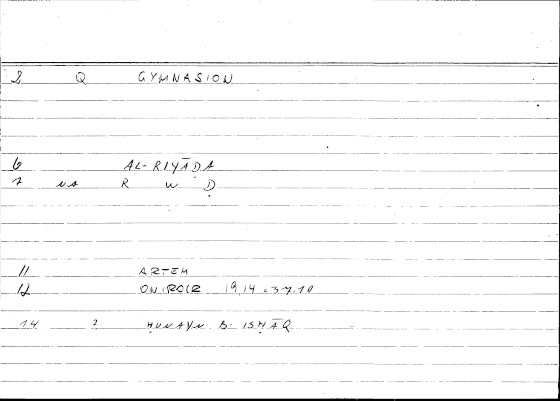 2 Q GYMNASION
6 AL-RIYĀḌA
7 NA R W Ḍ
11 ARTEM
12 ONIROCR 19,14 = 37,10
14 2 ḤUNAYN B. ISḤĀQ